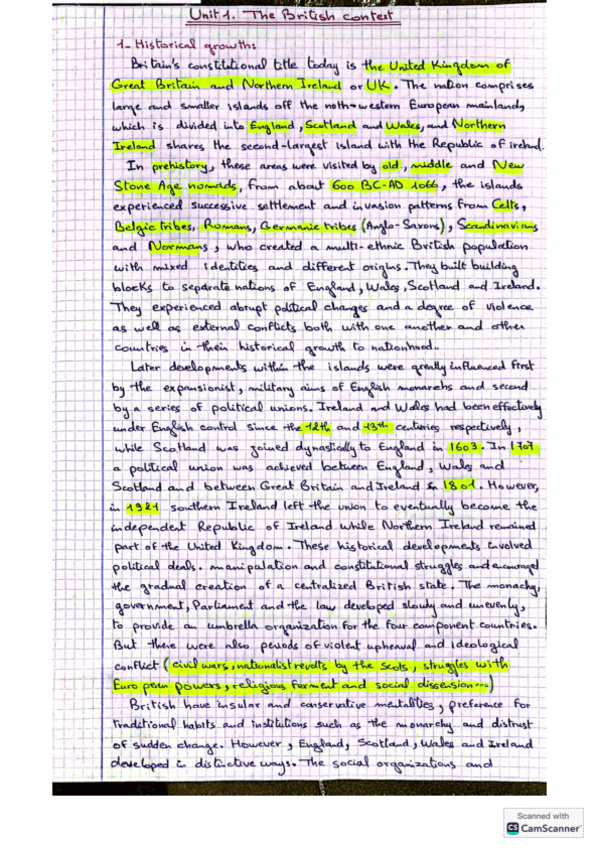 Unit 1. The British context
1- Historical growth:
Britain's constitutional title today is the United Kingdom of
Great Britain and Northern Ireland or UK. The nation comprises
large and smaller islands off the noth-western European mainland,
which is divided into England, Scotland and Wales, and Northern
Ireland shares the second-largest island with the Republic of ireland.
In prehistory, these areas were visited by old, middle and New
Stone Age nomads, from about 600 BC-AD 1066, the islands
experienced successive settlement and invasion patterns from Celts,
Belgic tribes, Romans, Germanic tribes (Anglo-Saxons), Scandinavians
and Normans, who created a multi-ethnic British population
with mixed identities and different origins. They built building
blocks to separate nations of England, Wales, Scotland and Ireland.
They experienced abrupt political changes and a degree of violence
as well as external conflicts both with one another and other
countries in their historical growth to nationhood.
Later developments within the islands were greatly influenced first
by the expansionist, military aims of English monarchs and second
by a series of political unions. Ireland and Wales had been effectively
under English control since the 12th and 13th centuries respectively,
while Scotland was joined dynastically to England in 1603. In 1707
a political union was achieved between England, Wales and
Scotland and between Great Britain and Ireland in 1801. However,
in 1921 southern Ireland left the union to eventually become the
independent Republic of Ireland while Northern Ireland remained
part of the United Kingdom. These historical developments involved
political deals. manipulation and constitutional struggles and encouraged
the gradual creation of a centralized British state. The monachy,
government, Parliament and the law developed slowly and unevenly,
to provide an umbrella organization for the four component countries.
But there were also periods of violent upheaval and ideological
conflict (civil wars, nationalist revolts by the Scots, struggles with
European powers, religious ferment and social dissension...)
British have insular and conservative mentalities, preference for
traditional habits and institutions such as the monarchy and distrust
of sudden change. However, England, Scotland, Wales and Ireland
developed in distinctive ways. The social organizations and
Scanned with
CS CamScanner